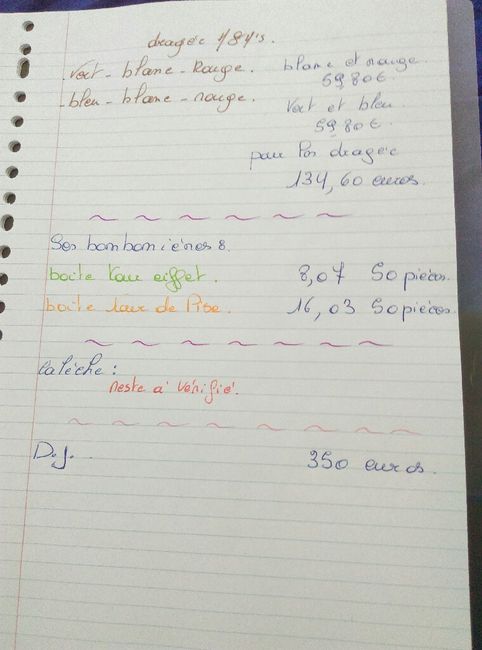 dragée
vert - blanc - Rouge.
bleu - blanc - rouge.
blanc et rouge.
59,80€.
Vert et bleu
59,80€
pour les dragée
134,60 euros.
Ses bonbonnières 8.
boite tour eiffel. 8,07 50 pièces.
boite tour de Pise. 16,03 50 pièces
Calèche :
reste a vérifié.
D.J... 350 euros.